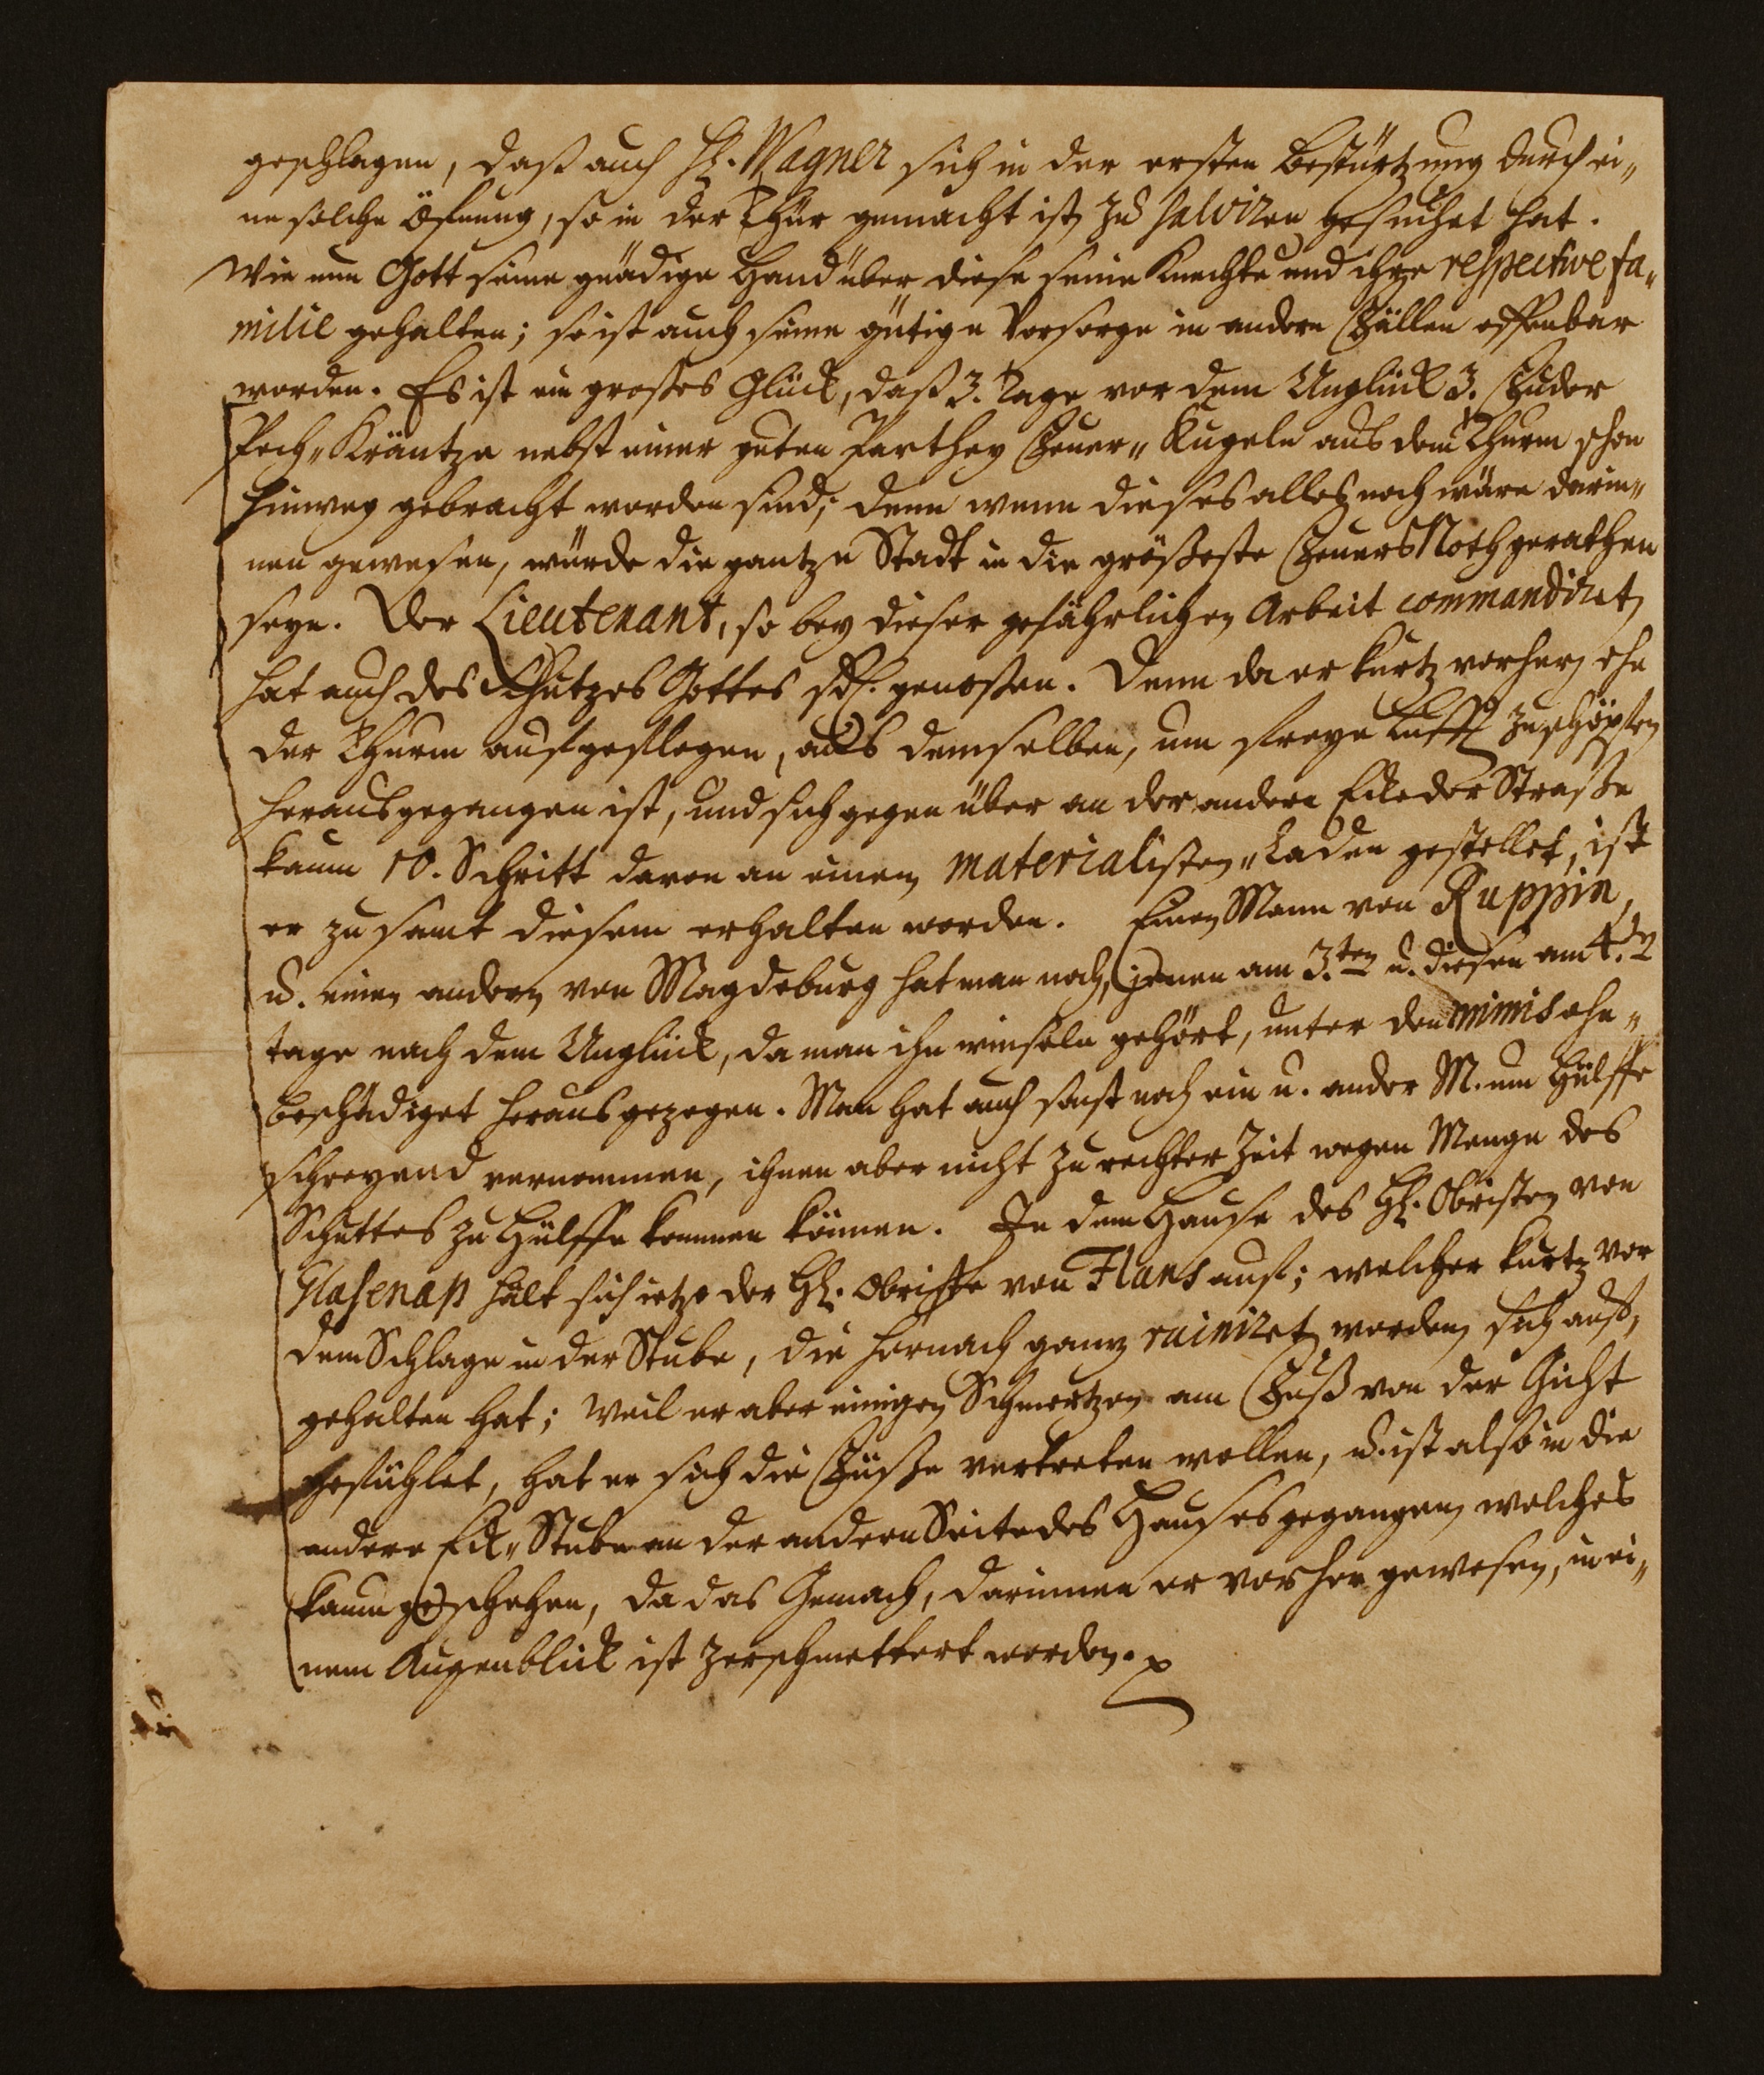 geschlagen, daß auch H. Wagner sich in der ersten Bestürtzung durch ei„
ne solche Öfnung, so in der Thür gemacht ist, zu salviren gesuchet hat.
Wie nun Gott seine gnädige Hand über diese seine Knechte und ihre respective fa„
milie gehalten; so ist auch seine gütige Vorsorge in andern Fällen offenbar
worden. Es ist ein großes Glück, daß 3. Tage vor dem Unglück 3. Fuder
Pech„ Kräntze nebst einer guten Parthey Feuer„ Kugeln aus dem Thurm schon
hinweg gebracht worden sind; denn wenn dieses alles noch wäre darin„
nen gewesen, würde die gantze Stadt in die größeste Feuers Noth gerathen
seyn. Der Lieutenant, so bey dieser gefährlichen Arbeit commandiret,
hat auch des Schutzes Gottes genoßen. Denn da er kurtz vorher, ehe
der Thurm aufgeflogen, aus demselben, um freye Lufft zu schöpfen
herausgegangen ist, und sich gegen über an der andern Ecke der Straße
kaum 10. Schritt davon an einen materialisten„ Laden gestellet, ist
er zu samt diesem erhalten worden. Einen Mann von Ruppin,
u. einen andern von Magdeburg hat man noch, jenen am 3.ten u. diesen am 4.ten
tage nach dem Unglück, da man ihn winseln gehört, unter den ruinis ohn„
beschädiget heraus gezogen. Man hat auch sonst noch ein u. ander M. um Hülffe
schreyend vernommen, ihnen aber nicht zu rechter Zeit wegen Menge des
Schuttes zu Hülffe kommen können. In dem Hause des H. Obristen von
Glasenap hält sich ietzo der H. Obriste von Flans auf; welcher kurtz vor
dem Schlage in der Stube, die hernach gantz ruiniret worden, sich auf„
gehalten hat; weil er aber einigen Schmertzen am Fuß von der Gicht
gefühlet, hat er sich die Füße vertreten wollen, u. ist also in die
andere Eck„ Stube an der andern Seite des Hauses gegangen, welches
kaum geschehen, da das Gemach, darinnen er vorher gewesen, in ei„
nem Augenblick ist zerschmettert worden.